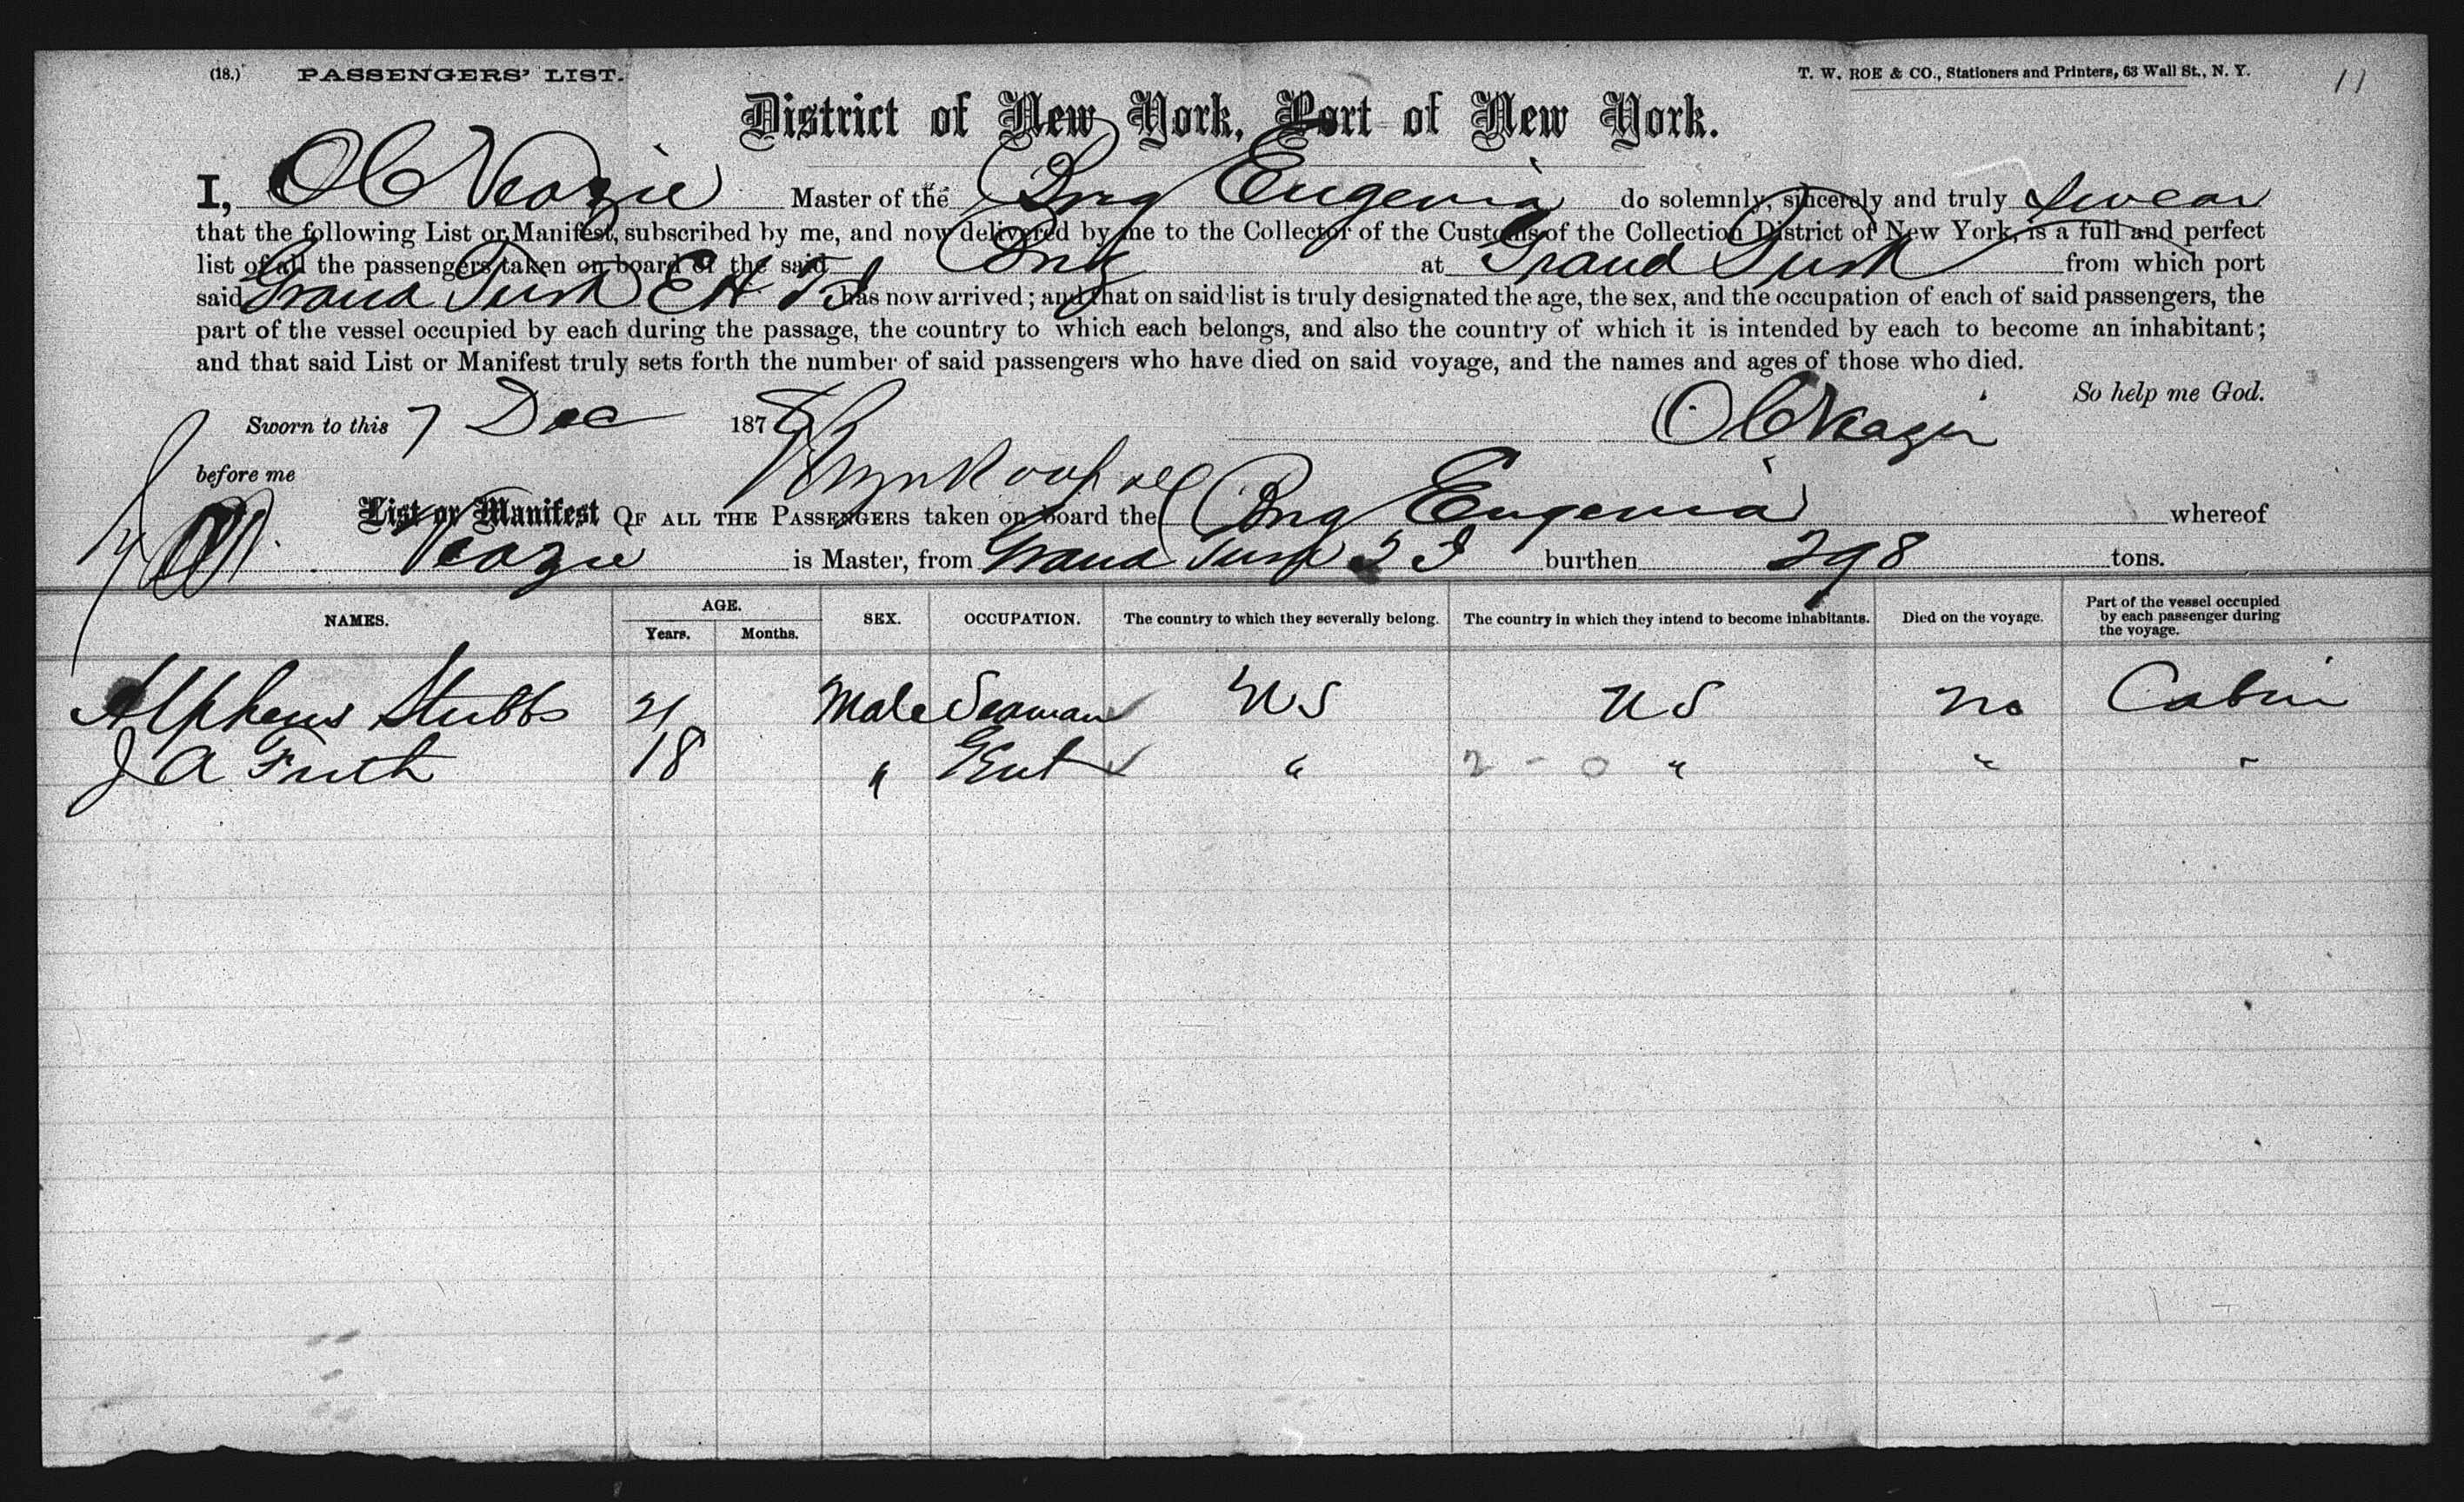 (18.) PASSENGERS' LIST. T. W. ROE & CO., Stationers and Printers, 63 Wall St., N. Y. 11
District of New York, Port of New York.
I, O C Veazie Master of the Brig Eugenia do solemnly, sincerely and truly swear
that the following List or Manifest, subscribed by me, and now delivered by me to the Collector of the Customs of the Collection District of New York, is a full and perfect
list of all the passengers taken on board of the said Brig at Grand Turk from which port
said Grand Turk has now arrived; and that on said list is truly designated the age, the sex, and the occupation of each of said passengers, the
part of the vessel occupied by each during the passage, the country to which each belongs, and also the country of which it is intended by each to become an inhabitant;
and that said List or Manifest truly sets forth the number of said passengers who have died on said voyage, and the names and ages of those who died.
So help me God.
Sworn to this 7 Dec 1878 O C Veazie
before me
List or Manifest OF ALL THE PASSENGERS taken on board the Brig Eugenia whereof
Veazie is Master, from Grand Turk burthen 298 tons.
NAMES. AGE. Years. Months. SEX. OCCUPATION. The country to which they severally belong. The country in which they intend to become inhabitants. Died on the voyage. Part of the vessel occupied by each passenger during the voyage.
Alpheus Stubbs 21 Male Seaman U S U S No Cabin
J A Frith 18 " Gent " 2 - 0 " " "